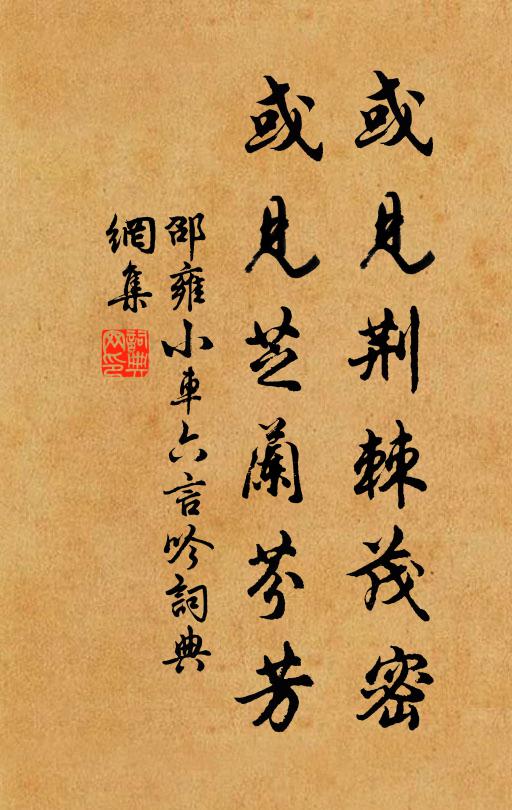 或見荆棘茂密
或見芝蘭芬芳
邵雍小車六言吟詞典
網集
詞典
网印